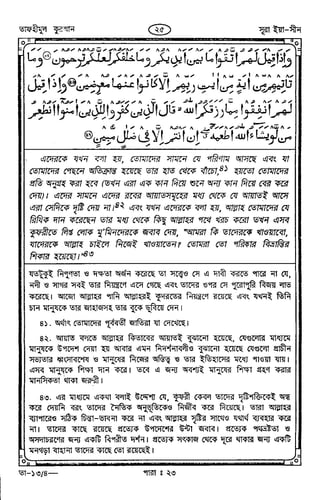 তাফহীমুল কুরআন
২৫
সূরা ইয়া-সীন
وَإِذَا قِيلَ لَهُمُ اتَّقُوا مَا بَيْنَ أَيْدِيكُمْ وَمَا خَلْفَكُمْ لَعَلَّكُمْ تُرْحَمُونَ ﴿٤٥﴾ وَمَا
تَأْتِيهِمْ مِنْ آيَةٍ مِنْ آيَاتِ رَبِّهِمْ إِلَّا كَانُوا عَنْهَا مُعْرِضِينَ ﴿٤٦﴾ وَإِذَا قِيلَ
لَهُمْ أَنْفِقُوا مِمَّا رَزَقَكُمُ اللَّهُ قَالَ الَّذِينَ كَفَرُوا لِلَّذِينَ آمَنُوا أَنُطْعِمُ
مَنْ لَوْ يَشَاءُ اللَّهُ أَطْعَمَهُ إِنْ أَنْتُمْ إِلَّا فِي ضَلَالٍ مُبِينٍ ﴿٤٧﴾
এদেরকে যখন বলা হয়, তোমাদের সামনে যে পরিণাম আসছে এবং যা
তোমাদের পেছনে অতিক্রান্ত হয়েছে তার হাত থেকে বাঁচো,৪১ হয়তো তোমাদের
প্রতি অনুগ্রহ করা হবে (তখন এরা এক কান দিয়ে শুনে অন্য কান দিয়ে বের করে
দেয়)। এদের সামনে এদের রবের আয়াতসমূহের মধ্য থেকে যে আয়াতই আসে
এরা সেদিকে দৃষ্টি দেয় না।৪২ এবং যখন এদেরকে বলা হয়, আল্লাহ তোমাদের যে
রিযিক দান করেছেন তার মধ্য থেকে কিছু আল্লাহর পথে খরচ করো তখন এসব
কুফরীতে লিপ্ত লোক মু'মিনদেরকে জবাব দেয়, "আমরা কি তাদেরকে খাওয়াবো,
যাদেরকে আল্লাহ চাইলে নিজেই খাওয়াতেন? তোমরা তো পরিষ্কার বিভ্রান্তির
শিকার হয়েছো।"৪৩
যতটুকুই নিপুণতা ও দক্ষতা অর্জন করেছে তা সত্ত্বেও সে এ দাবী করতে পারে না যে,
নদী ও সাগর সবই তার নিয়ন্ত্রণে এসে গেছে এবং তাদের ওপর সে পুরোপুরি বিজয় লাভ
করেছে। আজো আল্লাহর পানি আল্লাহরই কুদরতের নিয়ন্ত্রণে রয়েছে এবং যখনই তিনি
চান মানুষকে তার জাহাজসহ তার বুকে ডুবিয়ে দেন।
৪১. অর্থাৎ তোমাদের পূর্ববর্তী জাতিরা যা দেখেছে।
৪২. আয়াত বলতে আল্লাহর কিতাবের আয়াতই বুঝানো হয়েছে, যেগুলোর মাধ্যমে
মানুষকে উপদেশ দেয়া হয় আবার এমন নিদর্শনাবলীও বুঝানো হয়েছে যেগুলো প্রাচীন
সভ্যতার ধ্বংসাবশেষে ও মানুষের নিজের অস্তিত্ব ও তার ইতিহাসের মধ্যে পাওয়া যায়।
এসব মানুষকে শিক্ষা দান করে। তবে এ জন্য অবশ্যই মানুষের শিক্ষা গ্রহণ করার
মানসিকতা থাকা জরুরী।
৪৩. এর মাধ্যমে একথা বলাই উদ্দেশ্য যে, কুফরী কেবল তাদের দৃষ্টিশক্তিকেই অন্ধ
করে দেয়নি বরং তাদের নৈতিক অনুভূতিকেও নির্জীব করে দিয়েছে। তারা আল্লাহর
ব্যাপারেও সঠিক চিন্তা-ভাবনা করে না এবং আল্লাহর সৃষ্টির সাথেও যথার্থ ব্যবহার করে
না। তাদের কাছে রয়েছে প্রত্যেক উপদেশের উল্টা জবাব। প্রত্যেক পথভ্রষ্টতা ও
অসদাচরণের জন্য একটি বিপরীত দর্শন। প্রত্যেক সৎকাজ থেকে দূরে থাকার জন্য একটি
মনগড়া বাহানা তাদের কাছে তো রয়েছেই।
তা—১৩/৪—
পারা : ২৩